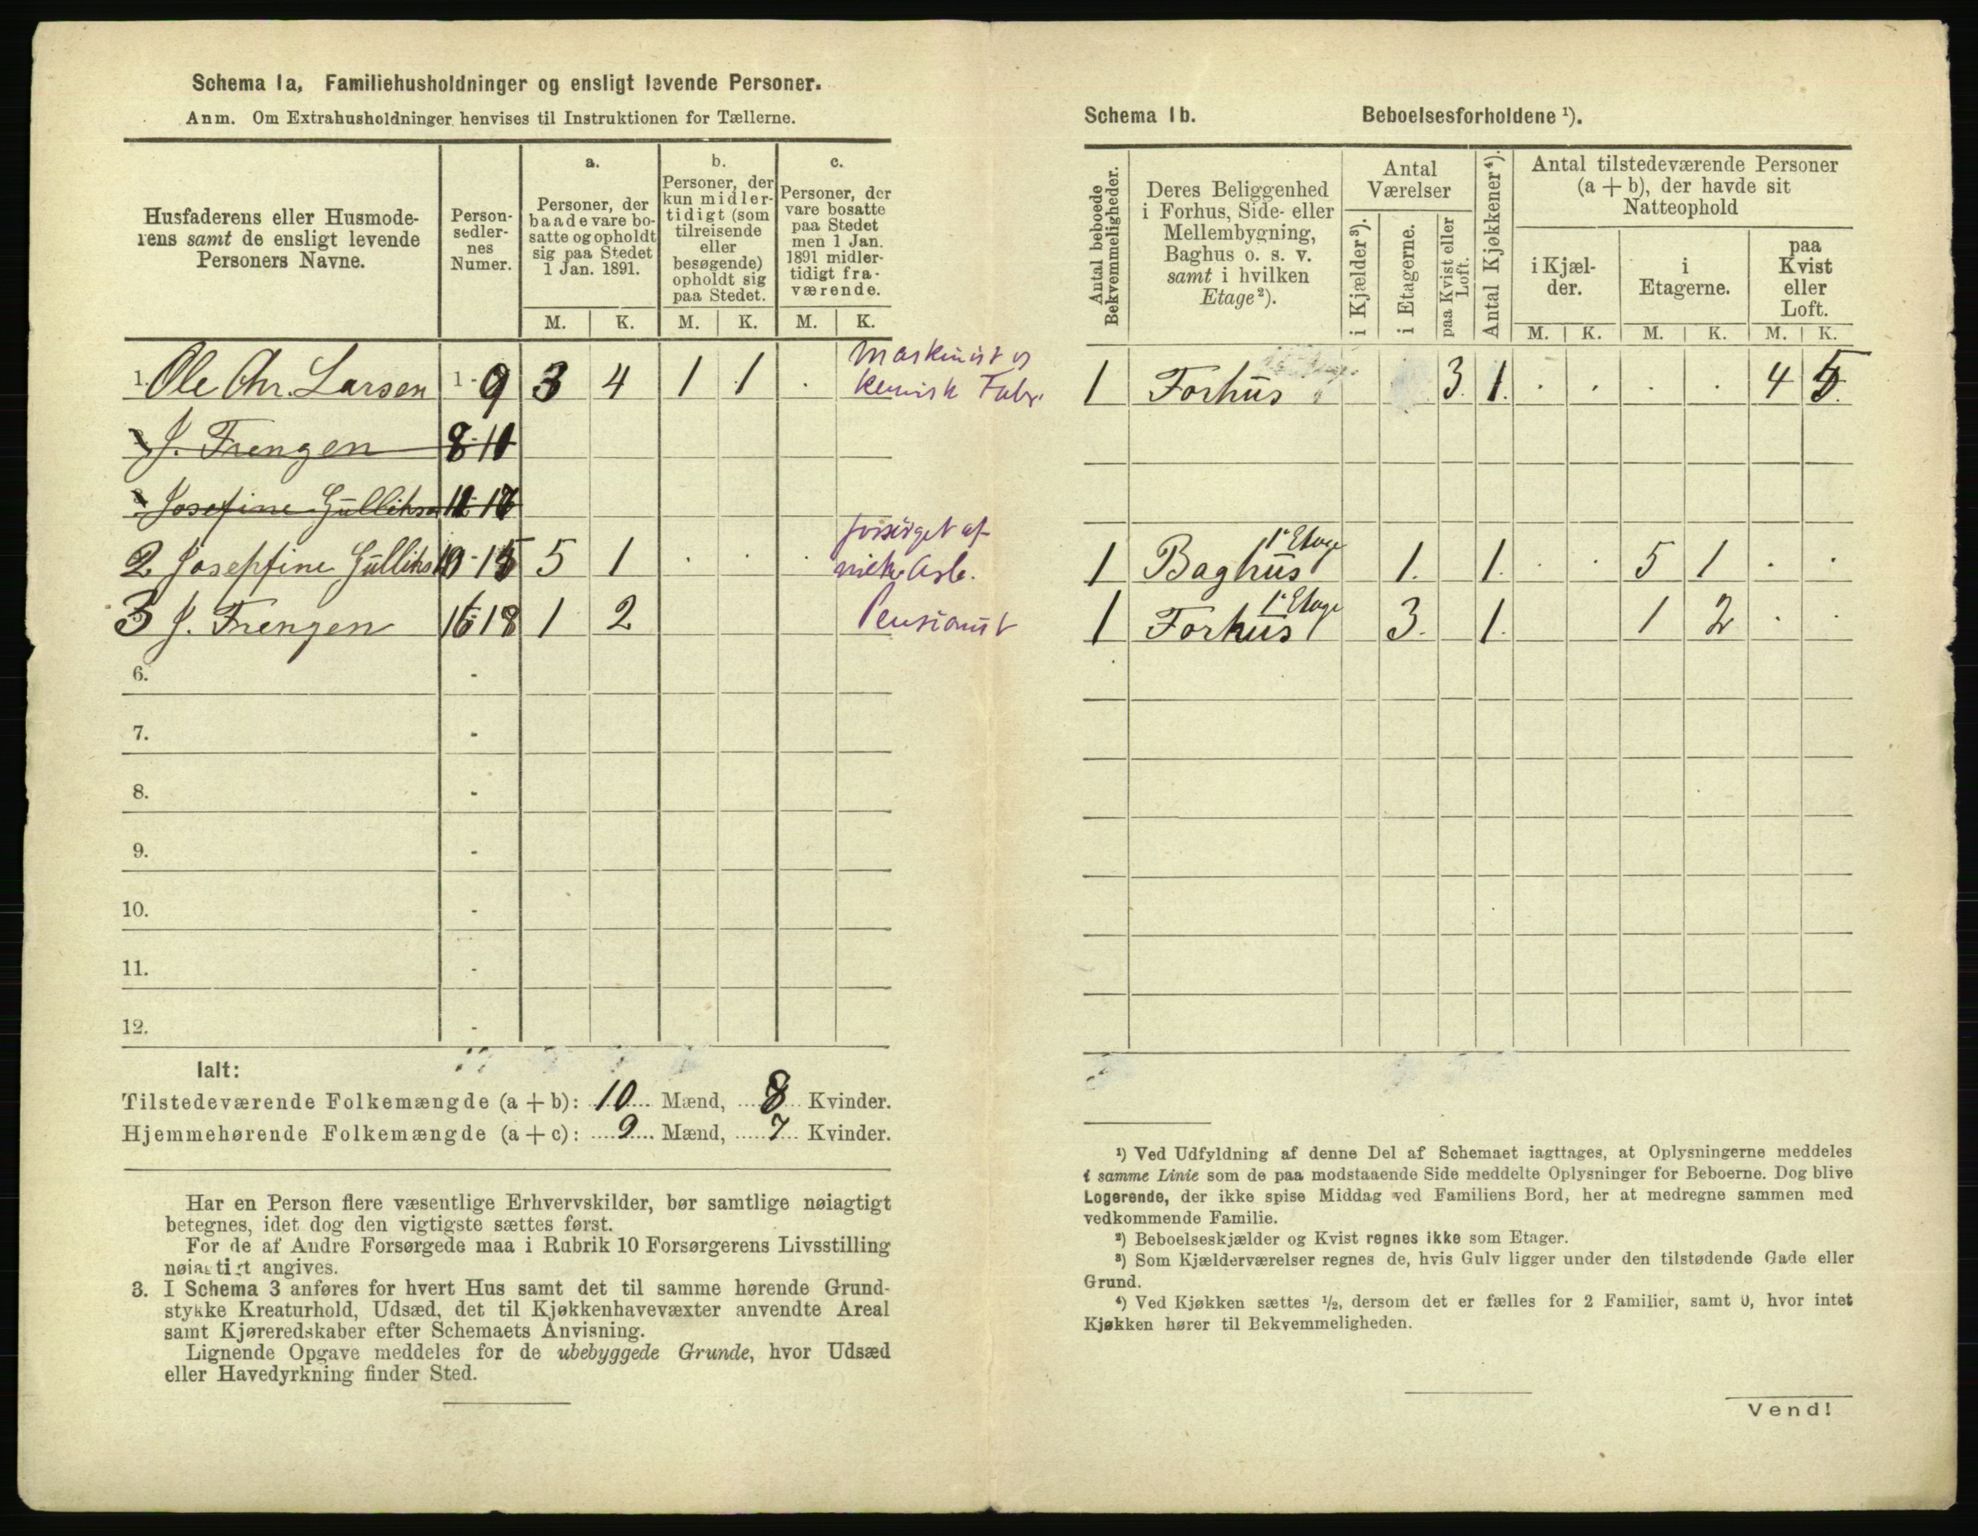 Schema 1a, Familiehusholdninger og ensligt levende Personer.
Anm. Om Extrahusholdninger henvises til Instruktionen for Tællerne.
Husfaderens eller Husmoderens samt de ensligt levende Personers Navne.
Person-sedler-nes Numer.
a.
Personer, der baade vare bosatte og opholdt sig paa Stedet 1 Jan. 1891.
b.
Personer, der kun midlertidigt (som tilreisende eller besøgende) opholdt sig paa Stedet.
c.
Personer, der vare bosatte paa Stedet men 1 Jan. 1891 midlertidigt fraværende.
M. K. M. K. M. K.
1. Ole Chr. Larsen 1 - 9 3 4 1 1 . Maskinist v kemisk Fabr.
J. Frengen 8-11
Josefine Gulliks
2 Josepfine Gulliks 10-15 5 1 . . forsörget af
3 J. Frengen 16-18 1 2 Pensionist
6. -
7. -
8. -
9. -
10. -
11. -
12. -
Ialt:
Tilstedeværende Folkemængde (a + b): 10 Mænd, 8 Kvinder.
Hjemmehørende Folkemængde (a + c): 9 Mænd, 7 Kvinder.
Har en Person flere væsentlige Erhvervskilder, bør samtlige nøiagtigt
betegnes, idet dog den vigtigste sættes først.
For de af Andre Forsørgede maa i Rubrik 10 Forsørgerens Livsstilling
nøiagtigt angives.
3. I Schema 3 anføres for hvert Hus samt det til samme hørende Grund-
stykke Kreaturhold, Udsæd, det til Kjøkkenhavevæxter anvendte Areal
samt Kjøreredskaber efter Schemaets Anvisning.
Lignende Opgave meddeles for de ubebyggede Grunde, hvor Udsæd
eller Havedyrkning finder Sted.
Schema 1b. Beboelsesforholdene ¹).
Antal beboede Bekvemmeligheder.
Deres Beliggenhed i Forhus, Side- eller Mellembygning, Baghus o. s. v. samt i hvilken Etage²).
Antal Værelser
i Kjælder³).
i Etagerne.
paa Kvist eller Loft.
Antal Kjøkkener⁴).
Antal tilstedeværende Personer (a + b), der havde sit Natteophold
i Kjælder.
i Etagerne.
paa Kvist eller Loft.
M. K. M. K. M. K.
1 Forhus 3. 1. . . . . 4 5.
1 Baghus 1ᵉ Etage 1. 1. . . 5 1 . .
1 Forhus 1ᵉ Etage 3. 1. 1 2 . .
¹) Ved Udfyldning af denne Del af Schemaet iagttages, at Oplysningerne meddeles
i samme Linie som de paa modstaaende Side meddelte Oplysninger for Beboerne. Dog blive
Logerende, der ikke spise Middag ved Familiens Bord, her at medregne sammen med
vedkommende Familie.
²) Beboelseskjælder og Kvist regnes ikke som Etager.
³) Som Kjælderværelser regnes de, hvis Gulv ligger under den tilstødende Gade eller
Grund.
⁴) Ved Kjøkken sættes ½, dersom det er fælles for 2 Familier, samt 0, hvor intet
Kjøkken hører til Bekvemmeligheden.
Vend!